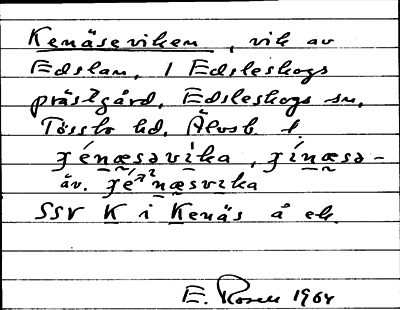 Kenäseviken, vik av
Edslan, 1 Edsleskogs
prästgård, Edsleskogs sn,
Tössbo hd, Älvsb. l.
ɟénæsəvìka, ɟínæsə-
äv. ɟé²næsvika
SSV K i Kenäs å ek.
E. Rosell 1964